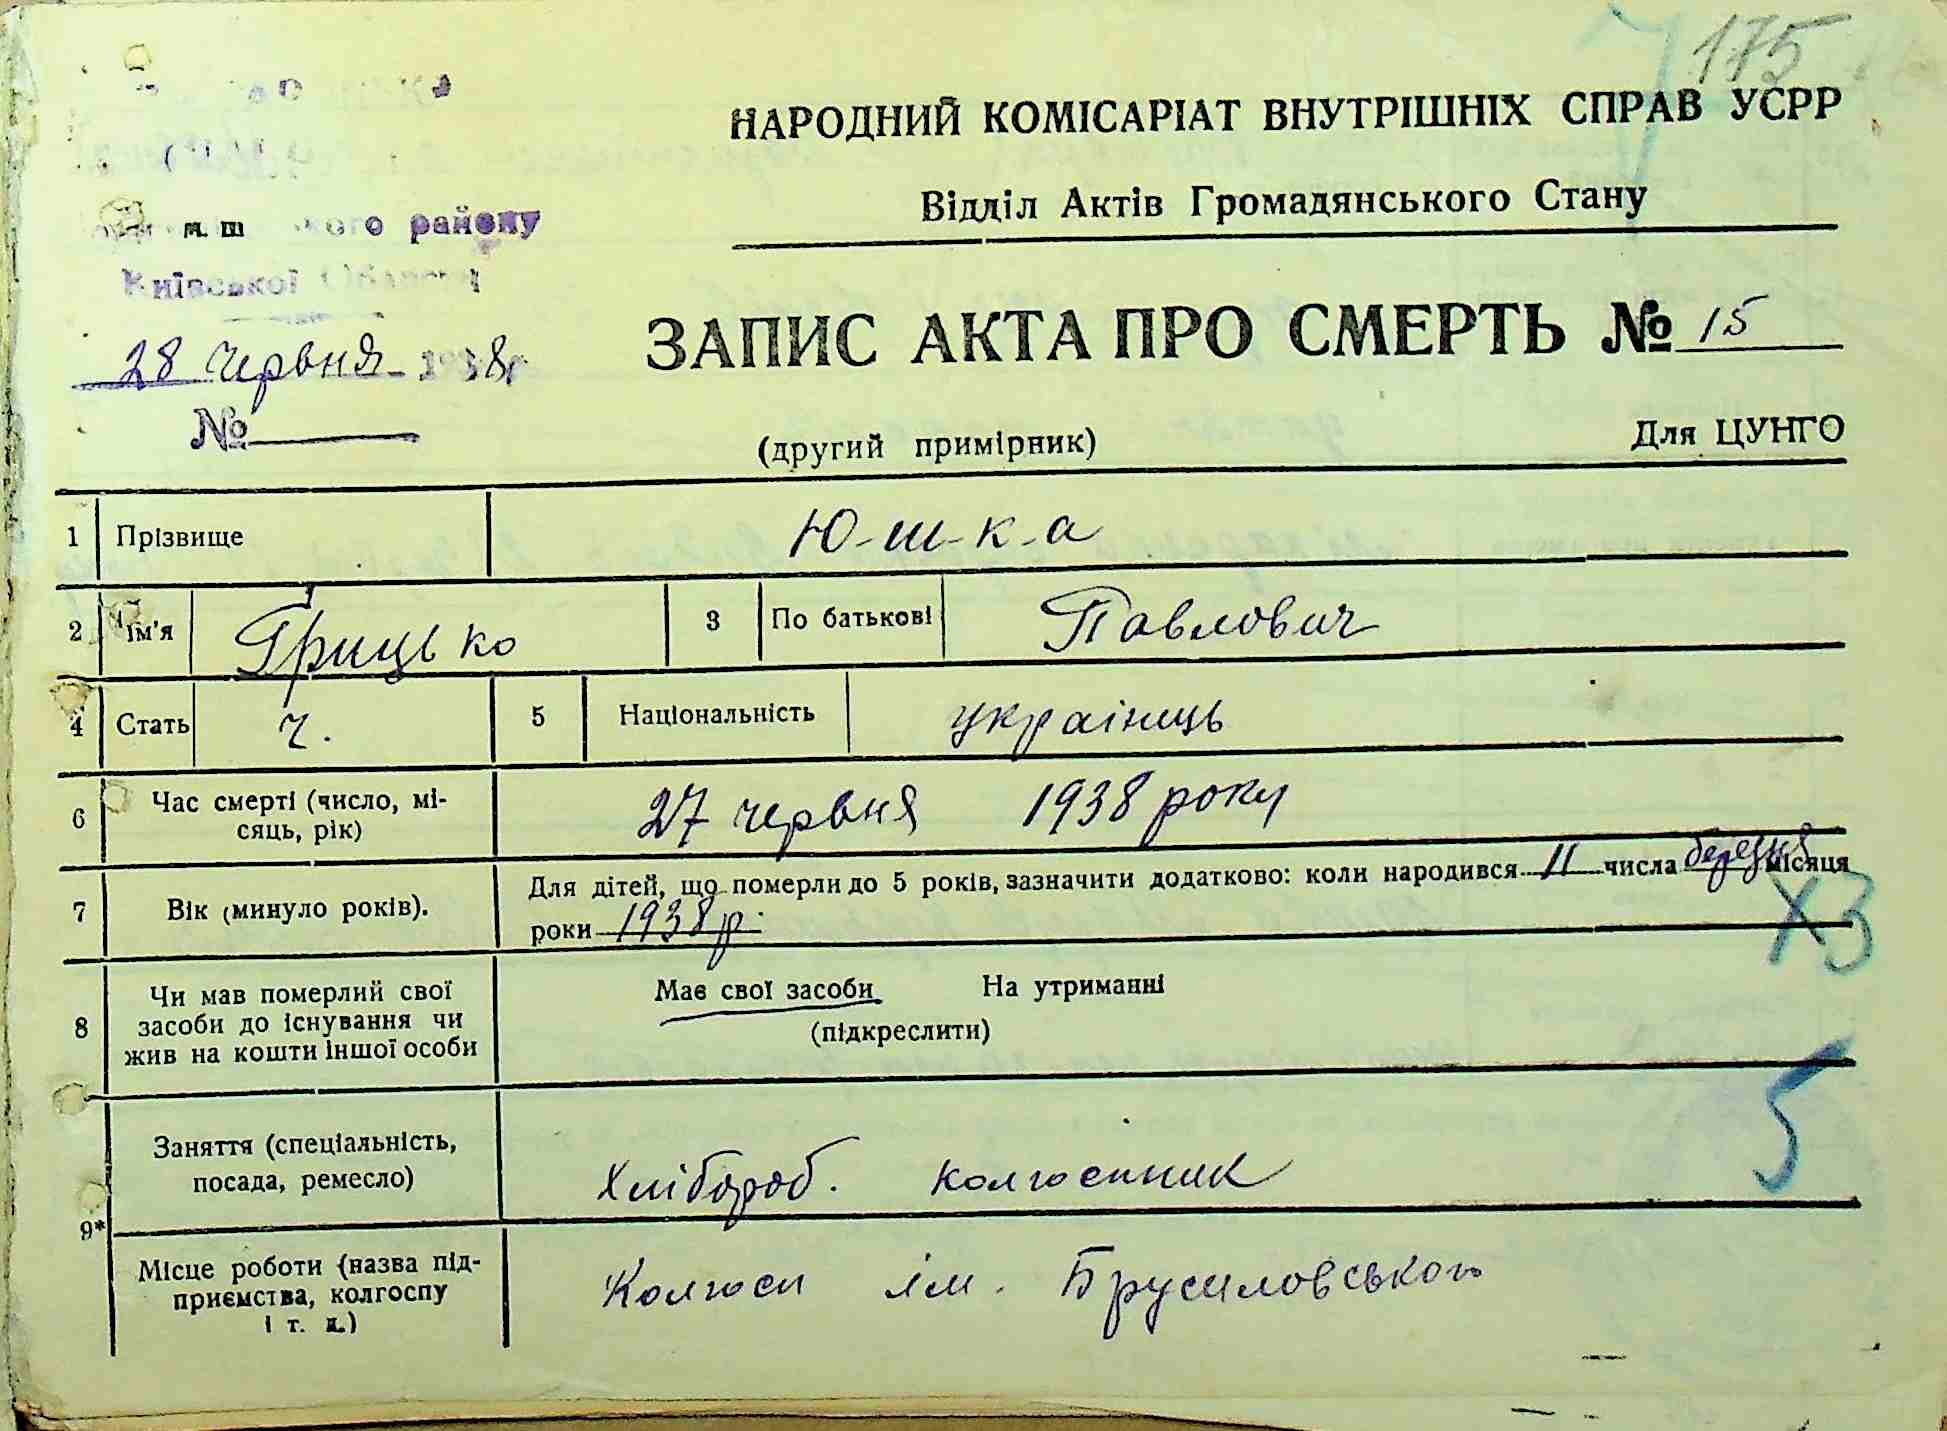 175
НАРОДНИЙ КОМІСАРІАТ ВНУТРІШНІХ СПРАВ УСРР
Відділ Актів Громадянського Стану
району
Київської Області
28 червня 1938 р.
№
ЗАПИС АКТА ПРО СМЕРТЬ № 15
(другий примірник)
Для ЦУНГО
1 Прізвище Ю-ш-к-а
2 Ім'я Грицько 3 По батькові Павлович
4 Стать ч. 5 Національність українець
6 Час смерті (число, мі-
сяць, рік) 27 червня 1938 року
7 Вік (минуло років). Для дітей, що померли до 5 років, зазначити додатково: коли народився 11 числа березня місяця
роки 1938 р.
ХЗ
8 Чи мав померлий свої
засоби до існування чи
жив на кошти іншої особи
Має свої засоби На утриманні
(підкреслити)
5
9*
Заняття (спеціальність,
посада, ремесло) Хлібороб. колгоспник
Місце роботи (назва під-
приємства, колгоспу
і т. д.) Колгосп ім. Брусиловського